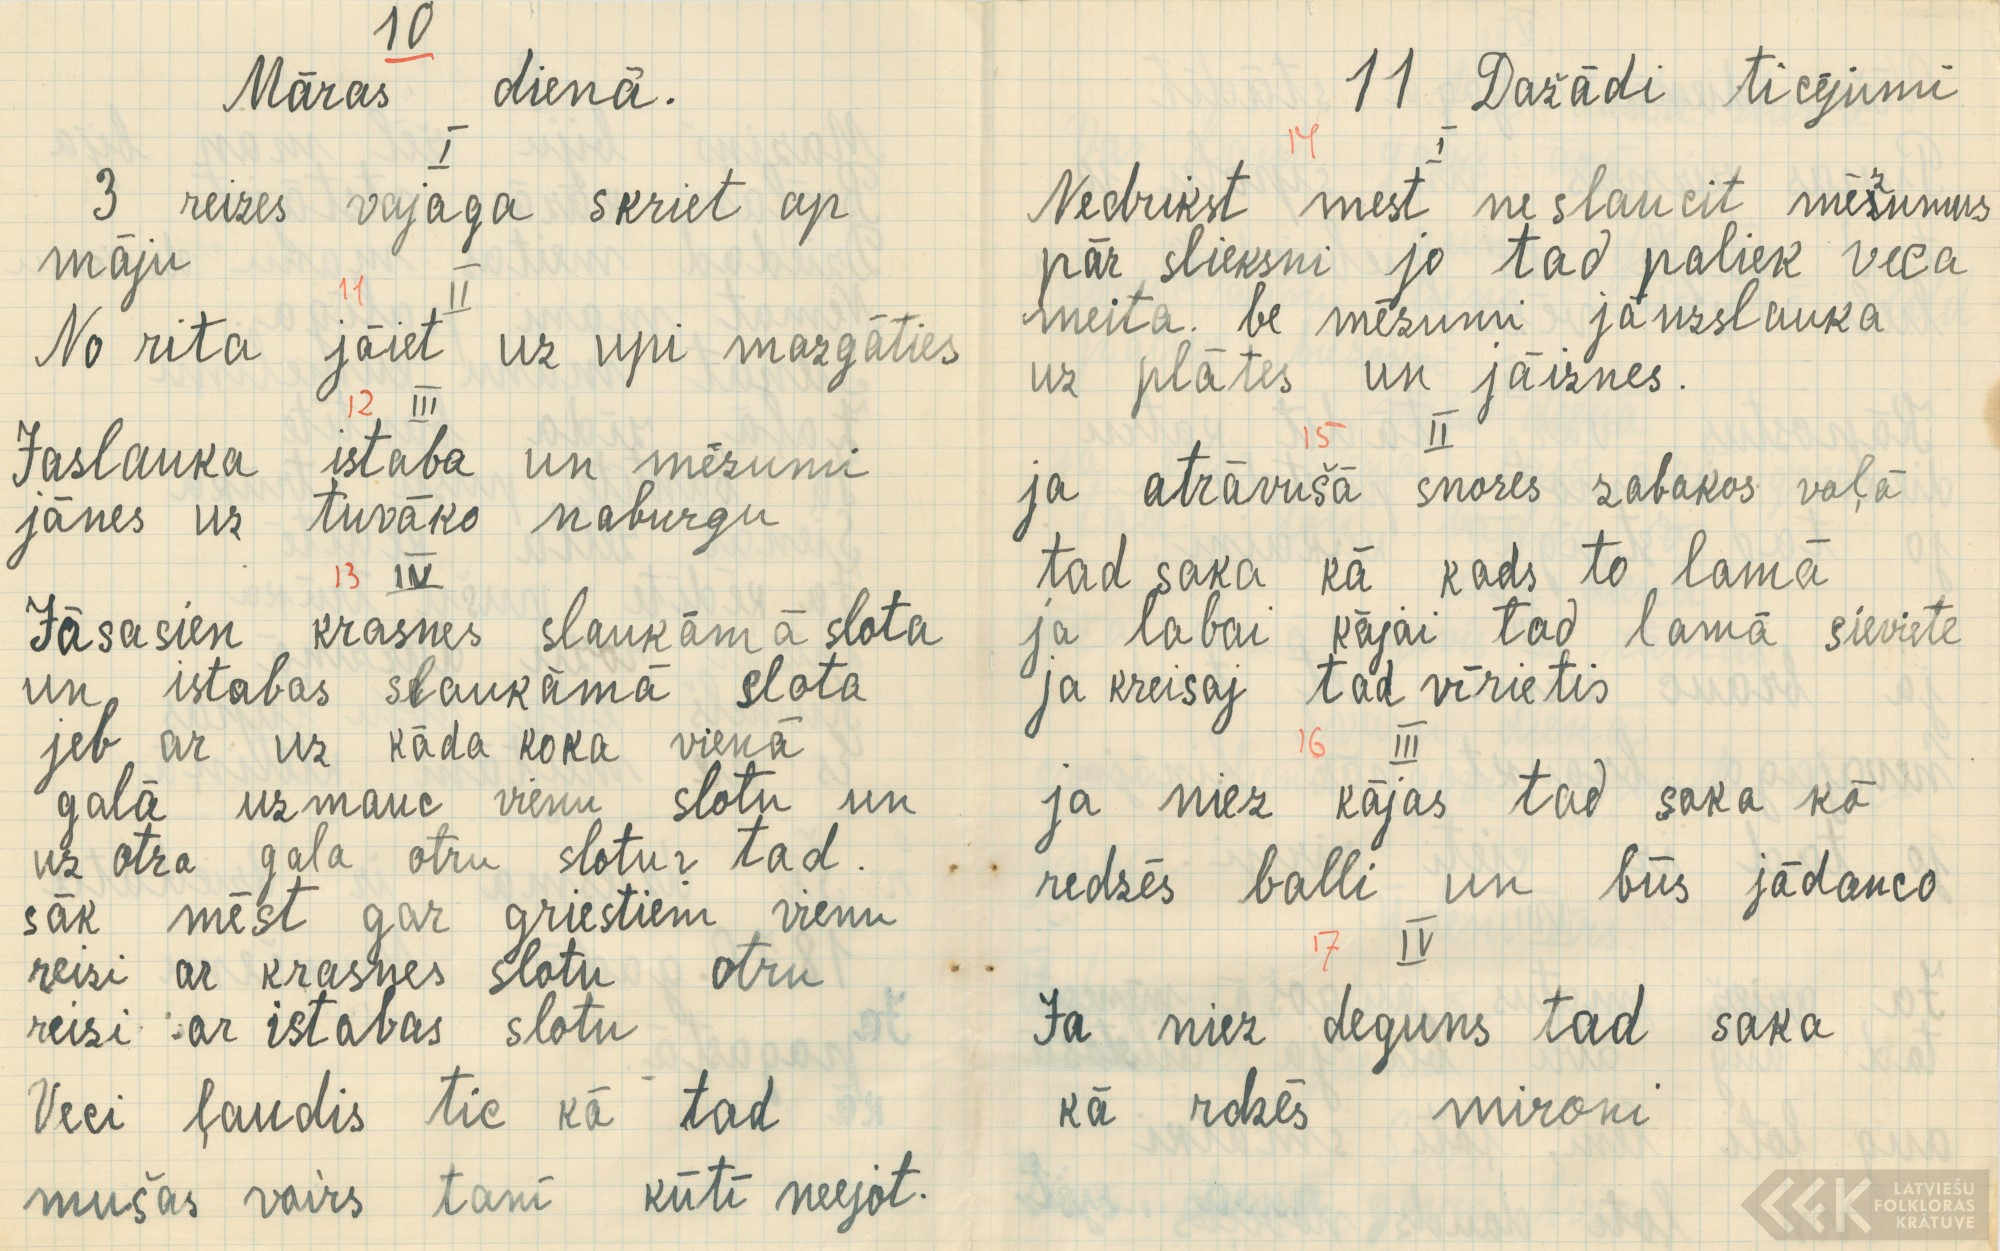 10
Māras dienā.
I
3 reizes vajaga skriet ap
māju
11 II
No rita jāiet uz upi mazgāties
12 III
Jaslauka istaba un mēzumi
jānes uz tuvāko naburgu
13 IV
Jāsasien krasnes slaukāmā slota
un istabas slaukāmā slota
jeb ar uz kāda koka vienā
galā uzmauc vienu slotu un
uz otra gala otru slotu tad.
sāk mēst gar griestiem vienu
reizi ar krasnes slotu otru
reizi ar istabas slotu
Veci ļaudis tic kā tad
mušas vairs tanī kūtī neejot.
11 Dažādi ticējumi
14 I
Nedrikst mest ne slaucit mēzumus
pār slieksni jo tad paliek veca
meita. be mēzumi jāuzslauka
uz plātes un jāiznes.
15 II
ja atrāvušā snores zabakos vaļā
tad saka kā kads to lamā
ja labai kājai tad lamā sieviete
ja kreisaj tad vīrietis
16 III
ja niez kājas tad saka kā
redzēs balli un būs jādanco
17 IV
Ja niez deguns tad saka
kā rdzēs mironi
LATVIEŠU
FOLKLORAS
KRĀTUVE